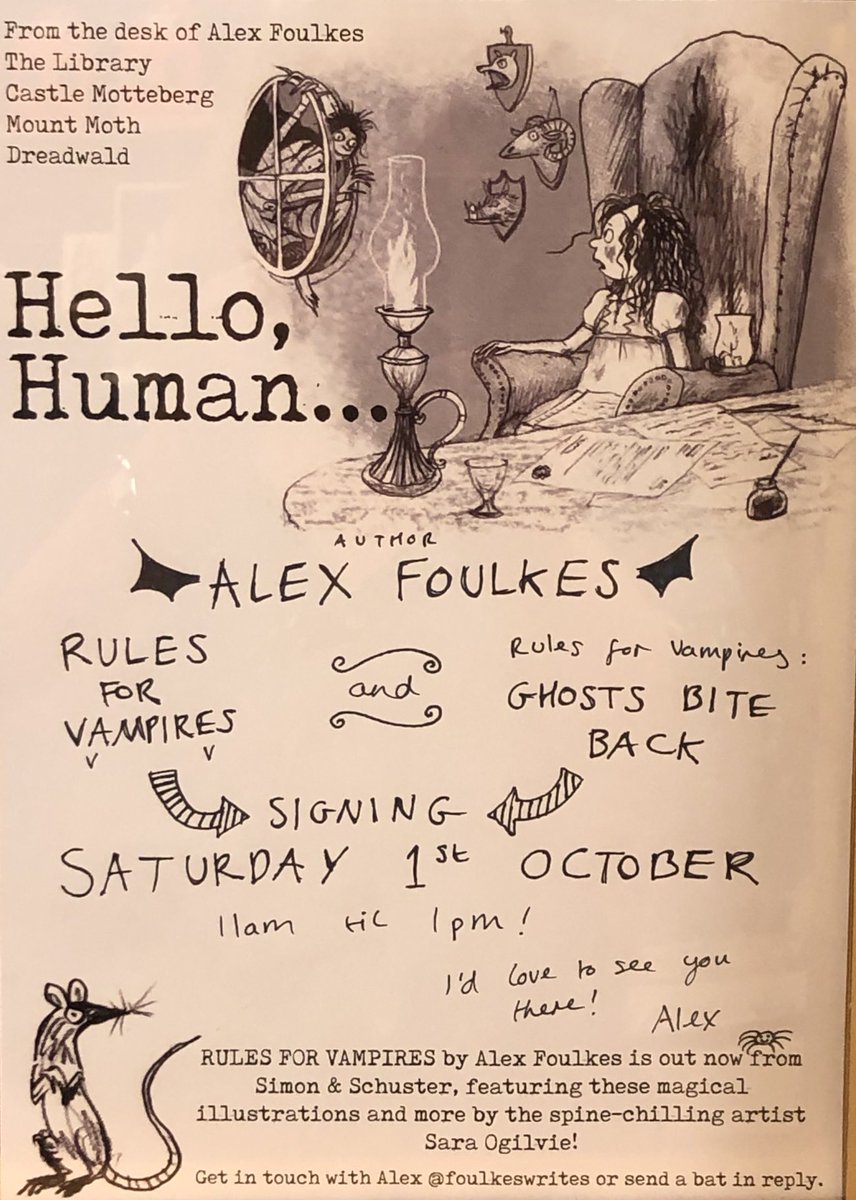 From the desk of Alex Foulkes
The Library
Castle Motteberg
Mount Moth
Dreadwald
Hello,
Human...
AUTHOR
ALEX FOULKES
RULES
FOR
VAMPIRES
and
Rules for Vampires:
GHOSTS BITE
BACK
SIGNING
SATURDAY 1st OCTOBER
11am til 1pm!
I'd love to see you
there!
Alex
RULES FOR VAMPIRES by Alex Foulkes is out now from
Simon & Schuster, featuring these magical
illustrations and more by the spine-chilling artist
Sara Ogilvie!
Get in touch with Alex @foulkeswrites or send a bat in reply.